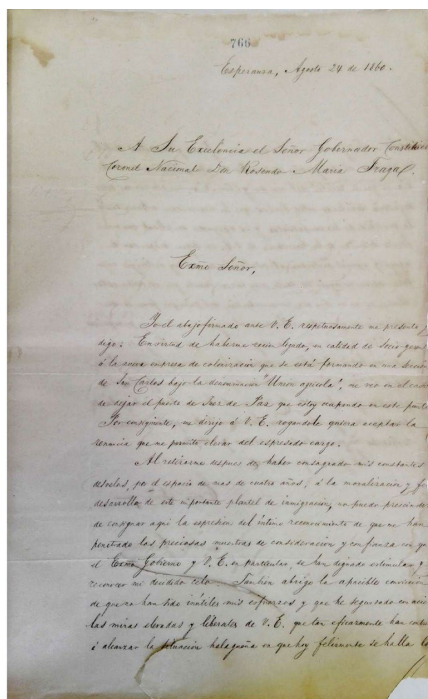 766
Esperanza, Agosto 24 de 1860.
A Su Excelencia el Señor Gobernador Constitucio
Coronel Nacional Dn Rosendo Maria Fraga.
Exmo Señor,
Yo el abajo firmado ante V. E. respetuosamente me presento y
digo: En virtud de haberme asociado, en calidad de Socio gerente
á la nueva empresa de colonización que se está formando en una Sección
de San Carlos bajo la denominacion "Union agricola", me veo en el caso
de dejar el puesto de Juez de Paz que estoy ocupando en este punto
Por consiguiente, me dirijo á V. E. rogandole quiera aceptar la
renuncia que me permito elevar del espresado cargo.
Al retirarme despues de haber consagrado mis constantes
desvelos, por el espacio de mas de cuatro años, á la moralizacion y
desarrollo de este importante plantel de inmigracion, no puedo prescindir
de consignar aquí la espresion del íntimo reconocimiento de que me han
penetrado las preciosas muestras de consideracion y confianza con que
el Exmo Gobierno y V. E. en particular, se han dignado estimular y
reconocer mi decidido celo. Tambien abrigo la apacible conviccion
de que no han sido inútiles mis esfuerzos y que he segundado en
las miras elevadas y liberales de V. E. que tan eficazmente han
á alcanzar la situacion halagueña en que hoy felizmente se halla